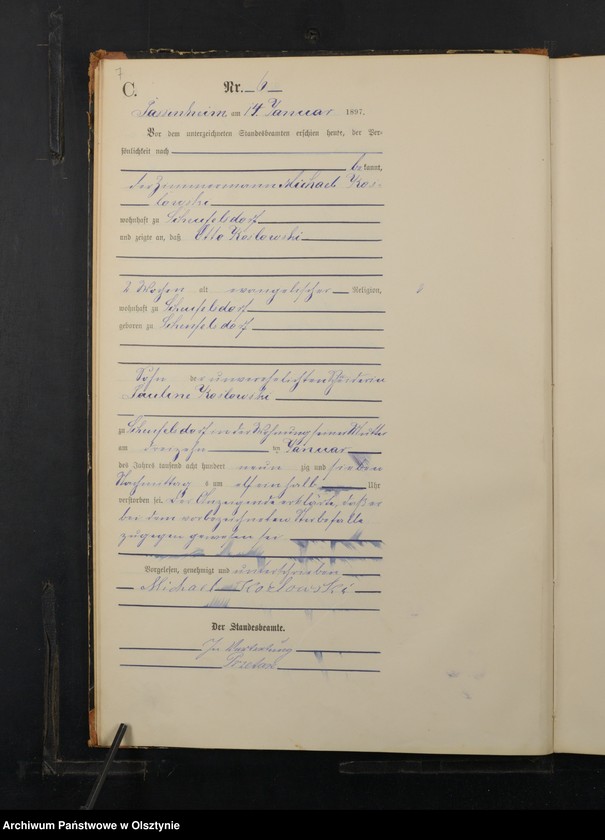 7
C.
Nr. 6
Passenheim am 14 Januar 1897.
Vor dem unterzeichneten Standesbeamten erschien heute, der Per-
sönlichkeit nach
be kannt,
der Zimmermann Michael Kos-
lowski
wohnhaft zu Scheufelsdorf
und zeigte an, daß Otto Koslowski
2 Wochen alt evangelischer Religion,
wohnhaft zu Scheufelsdorf
geboren zu Scheufelsdorf
Sohn der unverehelichten
Pauline Koslowski
zu Scheufelsdorf in der Wohnung seiner Mutter
am dreizehn ten Januar
des Jahres tausend acht hundert neun zig und sieben
Nachmittag s um elf ein halb Uhr
verstorben sei. Der Anzeigende erklärte, daß er
bei dem vorbezeichneten Sterbefalle
zugegen gewesen sei
Vorgelesen, genehmigt und unterschrieben
Michael Koslowski
Der Standesbeamte.
In Vertretung
Archiwum Państwowe w Olsztynie